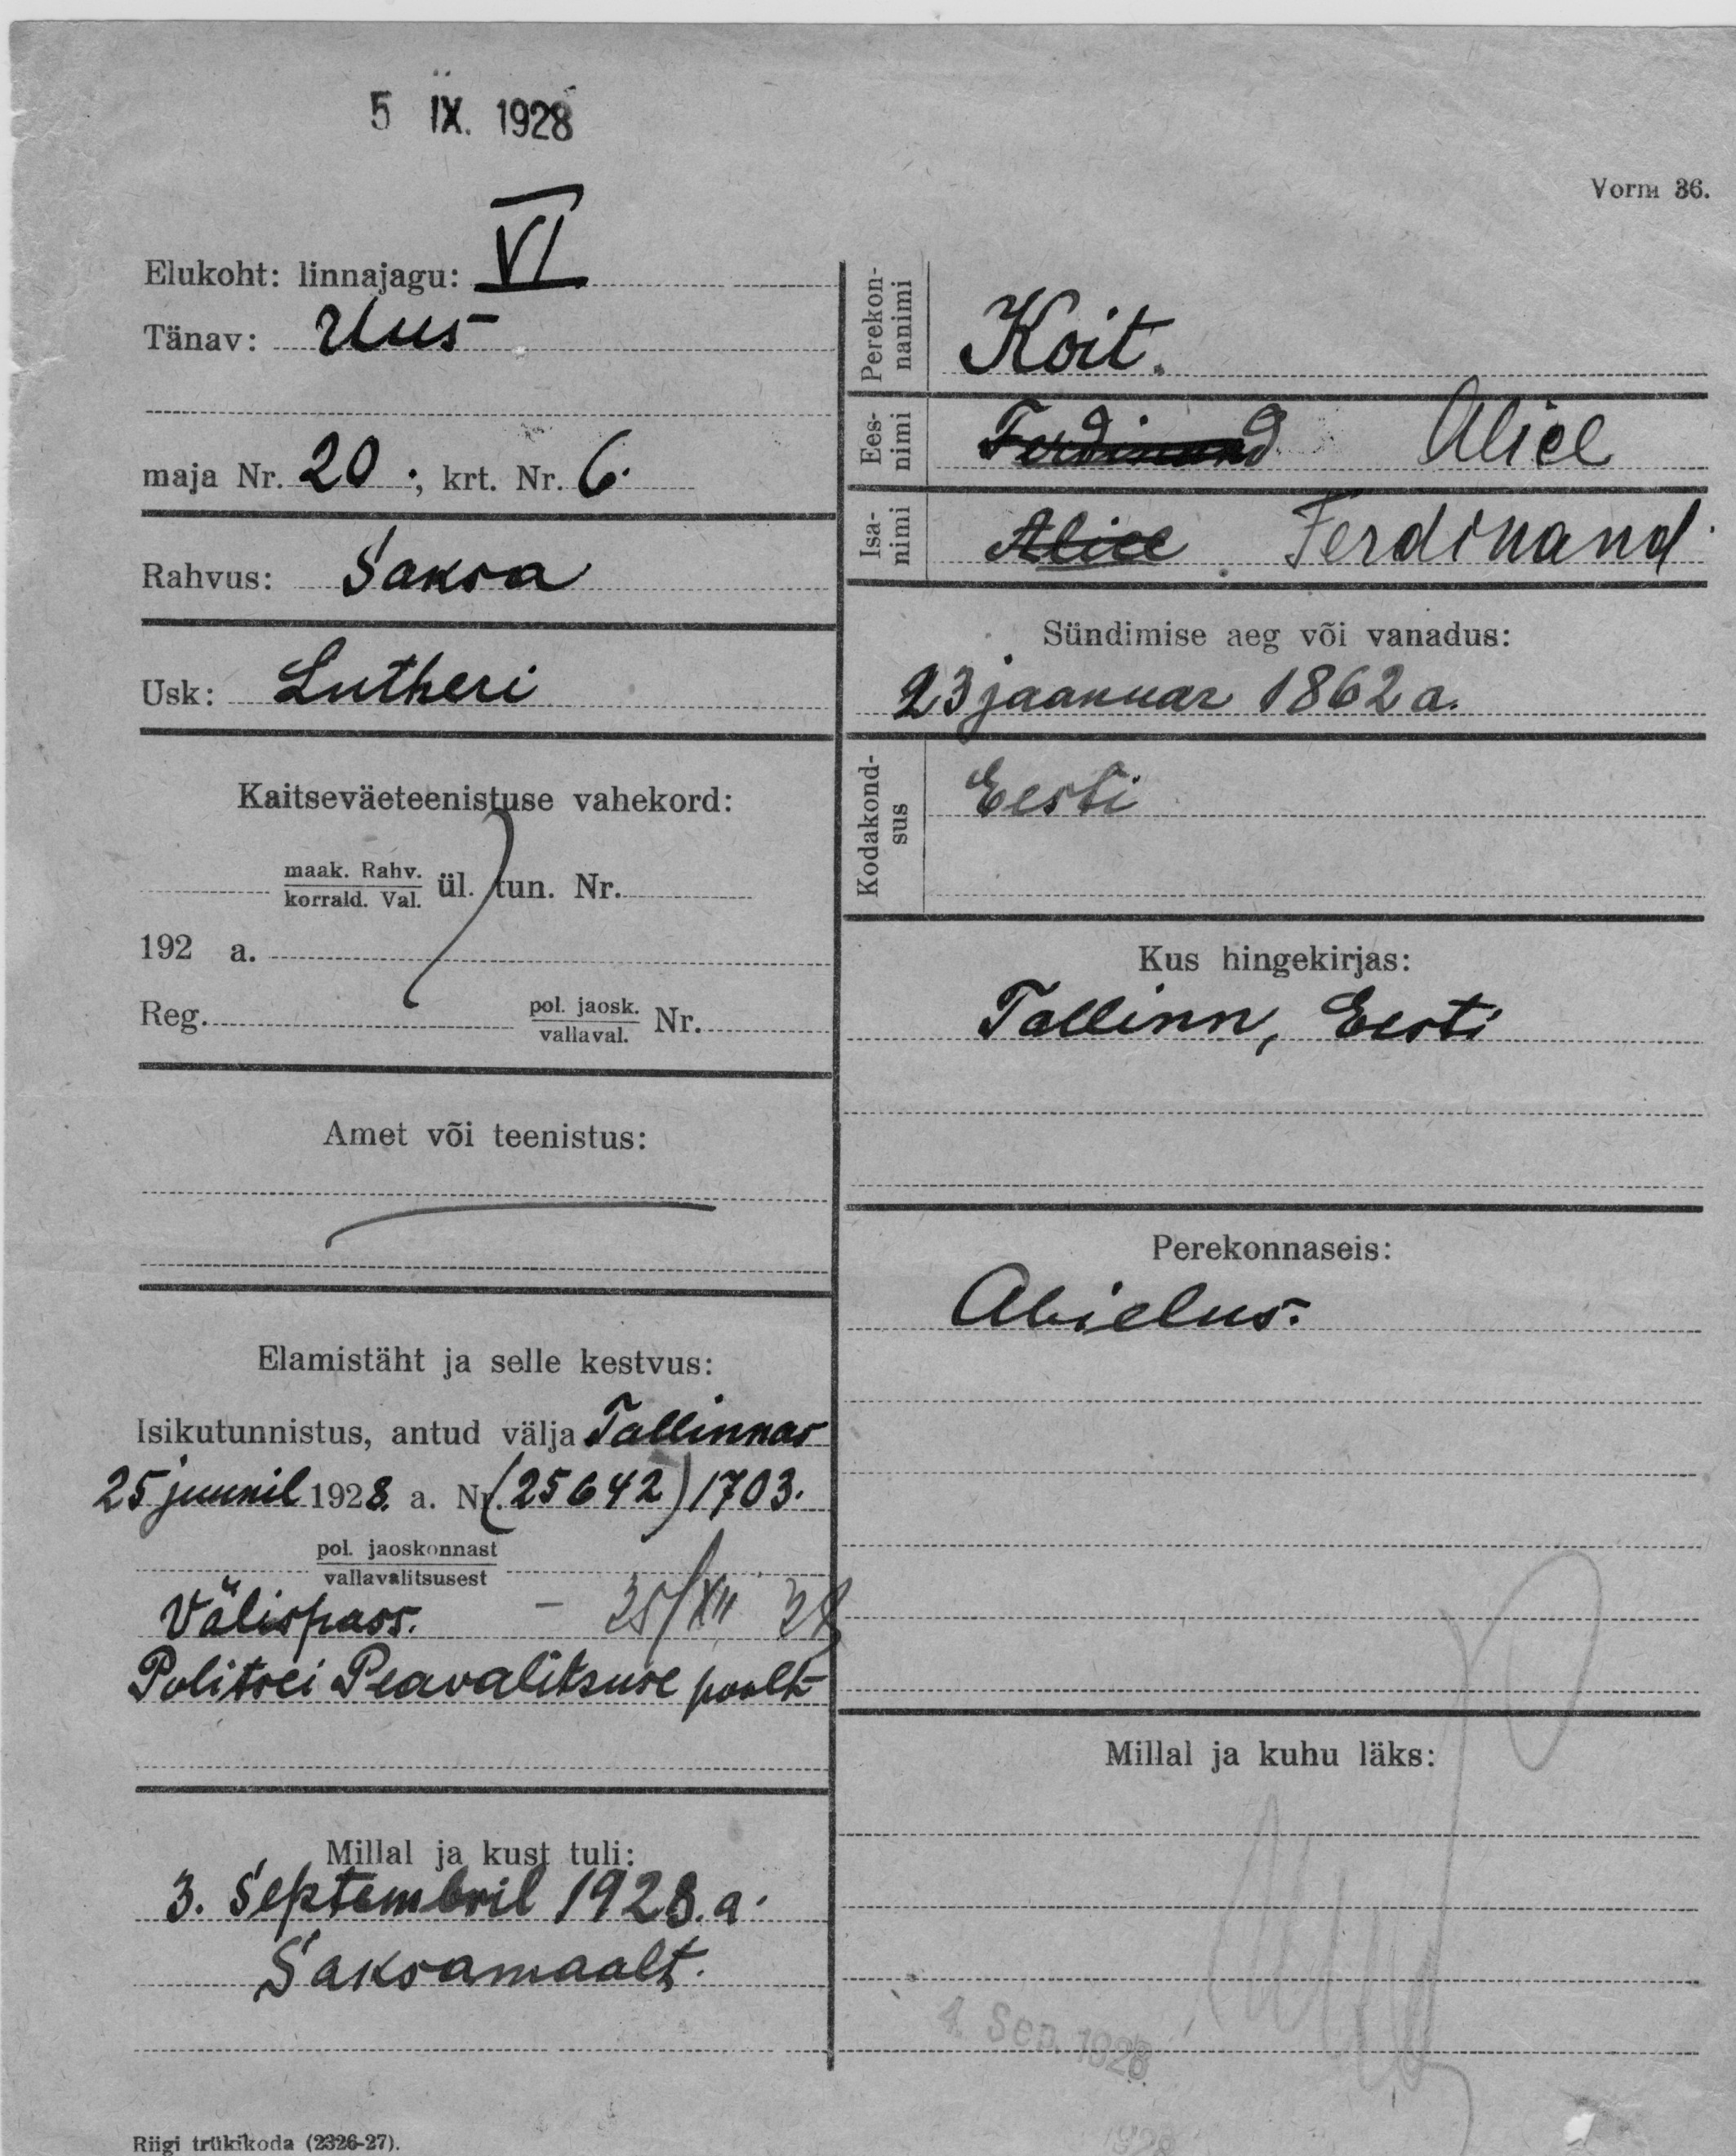 5 IX. 1928
Vorm 36.
Elukoht: linnajagu: VI
Tänav: Uus
maja Nr. 20 ; krt. Nr. 6.
Rahvus: Saksa
Usk: Lutheri
Kaitseväeteenistuse vahekord:
maak. Rahv.
korrald. Val. ül. tun. Nr.
192 a.
Reg. pol. jaosk.
vallaval. Nr.
Amet või teenistus:
Elamistäht ja selle kestvus:
Isikutunnistus, antud välja Tallinnas
25 juunil 1928. a. Nr. (25642) 1703.
pol. jaoskonnast
vallavalitsusest
Välispass. – 25/XII 28
Politsei Peavalitsuse poolt
Millal ja kust tuli:
3. Septembril 1928. a.
Saksamaalt.
Perekon-
nanimi
Koit.
Ees-
nimi
Ferdinand Alice
Isa-
nimi
Alice Ferdinand
Sündimise aeg või vanadus:
23 jaanuar 1862 a.
Kodakond-
sus
Eesti
Kus hingekirjas:
Tallinn, Eesti
Perekonnaseis:
Abielus.
Millal ja kuhu läks:
4. Sep. 1928
1928
Riigi trükikoda (2326-27).